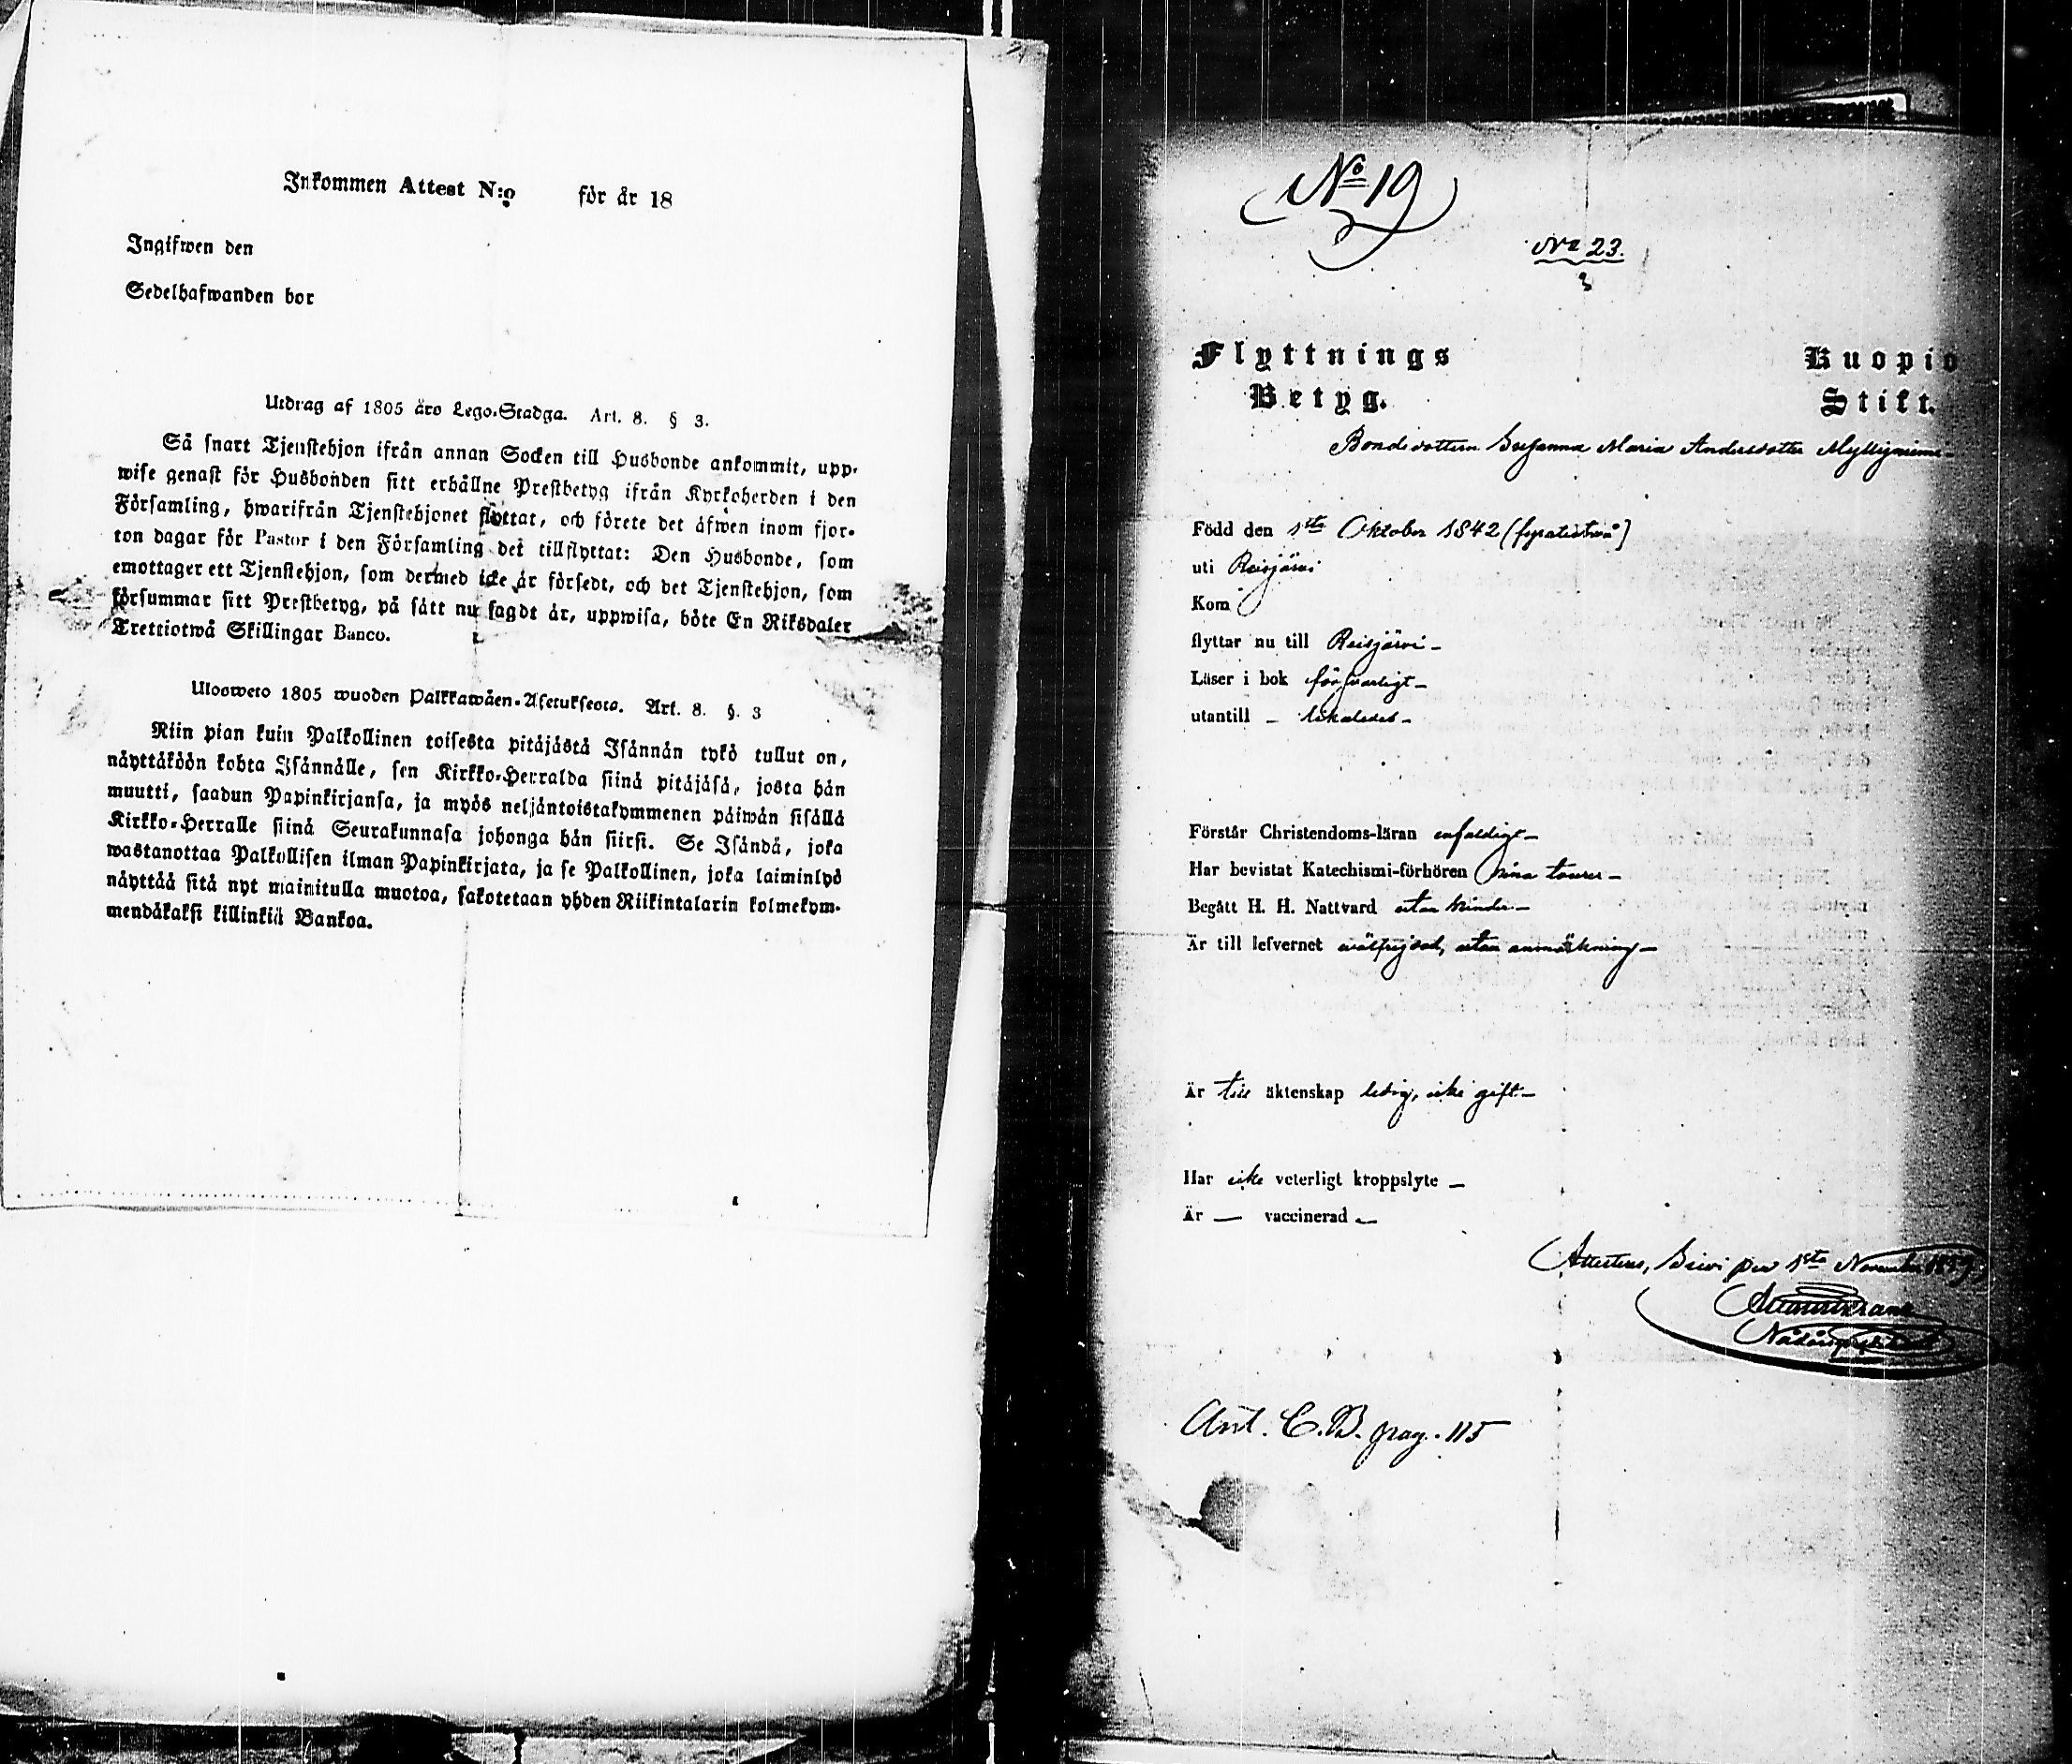 Inkommen Attest N:o för år 18
Ingifwen den
Sedelhafwanden bor
Utdrag af 1805 års Lego-Stadga. Art. 8. § 3.
Så snart Tjenstehjon ifrån annan Socken till Husbonde ankommit, upp-
wise genast för Husbonden sitt erhållne Prestbetyg ifrån Kyrkoherden i den
Församling, hwarifrån Tjenstehjonet flyttat, och förete det äfwen inom fjor-
ton dagar för Pastor i den Församling det tillflyttat: Den Husbonde, som
emottager ett Tjenstehjon, som dermed icke är försedt, och det Tjenstehjon, som
försummar sitt Prestbetyg, på sätt nu sagdt är, uppwisa, böte En Riksdaler
Trettiotwå Skillingar Banco.
Ulosweto 1805 wuoden Palkkawäen-Asetuksesta. Art. 8. §. 3
Niin pian kuin Palkollinen toisesta pitäjästä Isännän tykö tullut on,
näyttäköön kohta Isännälle, sen Kirkko-Herralda siinä pitäjäsä, josta hän
muutti, saadun Papinkirjansa, ja myös neljäntoistakymmenen päiwän sisällä
Kirkko-Herralle siinä Seurakunnasa johonga hän siirsi. Se Isändä, joka
wastanottaa Palkollisen ilman Papinkirjata, ja se Palkollinen, joka laiminlyö
näyttää sitä nyt mainitulla muotoa, sakotetaan yhden Riikintalarin kolmekym-
mendäkaksi killinkiä Bankoa.
No 19
No 23.
Flyttnings Kuopio
Betyg. Stift.
Bondedottern Susanna Maria Andersdotter
Född den 1sta Oktober 1842 (fyratiotvå)
uti Reisjärvi
Kom
flyttar nu till Reisjärvi –
Läser i bok försvarligt –
utantill – likaledes –
Förstår Christendoms-läran enfaldigt –
Har bevistat Katechismi-förhören sina tourer –
Begått H. H. Nattvard utan hinder –
Är till lefvernet wälfrejdad, utan anmärkning –
Är till äktenskap ledig, icke gift –
Har icke veterligt kroppslyte –
Är — vaccinerad –
Attesteras, Sievi den 1sta November
Ant. C.B. pag. 115